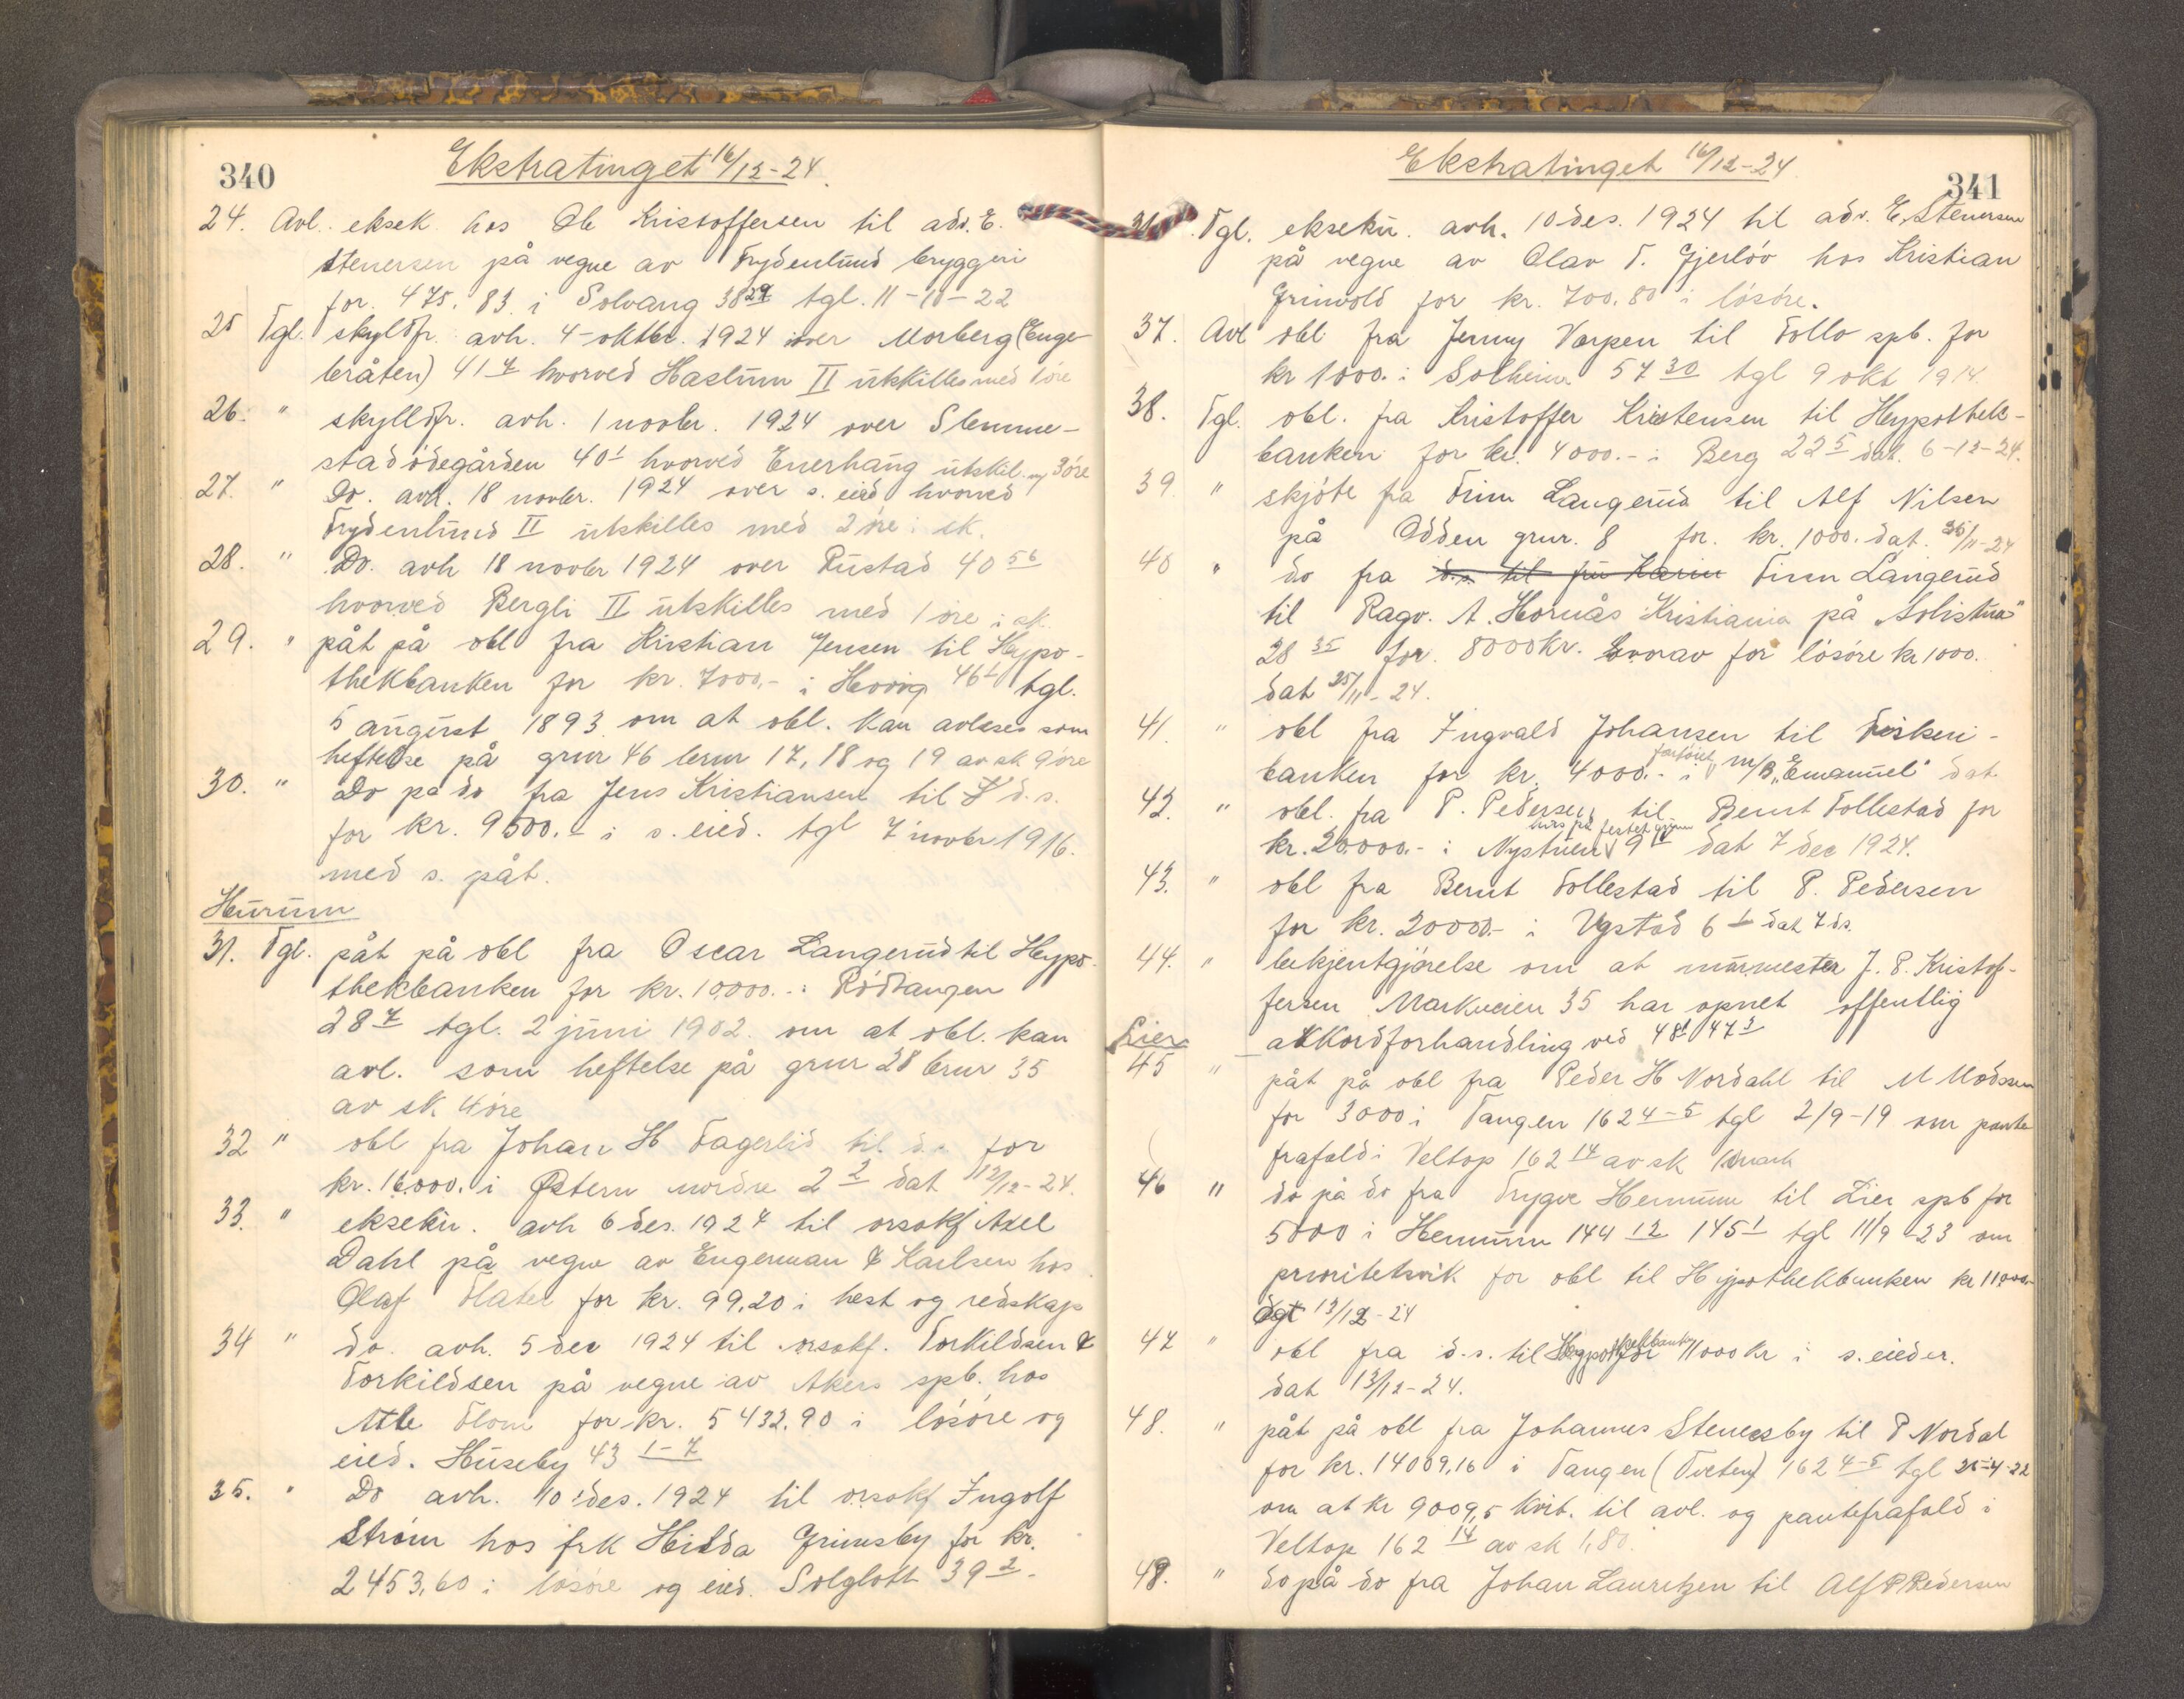 340
Ekstratinget 16/12-24.
24. Avl. eksek. hos Ole Kristoffersen til adv. E.
Stenersen på vegne av Frydenlund bryggeri
for. 475.83 i Solvang 38 29 tgl. 11-10-22
25 Tgl. skyldfr. avh. 4 oktbr. 1924 over Morberg (Enge-
bråten) 41 7 hvorved Haslum II utskilles med 1 öre
26. " skylldfr. avh. 1 novbr. 1924 over Slemme-
stadödegården 40 1 hvorved Enerhaug utskil. m/ 3 öre
27. " Do. avh. 18 novbr. 1924 over s. eied hvorved
Frydenlund II utskilles med 2 öre i sk.
28. " Do. avh 18 novbr 1924 over Rustad 40 56
hvorved Bergli II utskilles med 1 öre i sk.
29. " påt på obl fra Kristian Jensen til Hypo-
thekbanken for kr. 7000,- i 46 1 tgl.
5 august 1893 om at obl. kan avleses som
heftelse på grnr 46 brnr 17, 18 og 19 av sk 9 öre
30. " Do på do fra Jens Kristiansen til d.s.
for kr. 9500.- i s. eied. tgl 7 novbr 1916.
med s. påt.
Hurum
31. Tgl. påt på obl fra Oscar Langerud til Hypo-
thekbanken for kr. 10,000.- i Rödtangen
28 7 tgl. 2 juni 1902. om at obl. kan
avl. som heftelse på grnr 28 brnr 35
av sk. 4 öre
32 " obl fra Johan H Fagerlid til do for
kr. 16.000. i Östern nordre 2 2 dat 12/12-24.
33. " eksekü. avh 6 des. 1924 til orsakf Axel
Dahl på vegne av Engerman & Karlsen hos
Olaf for kr. 99,20 i hest og redskap
34 " do. avh. 5 dec 1924 til orsakf. Torkildsen &
Torkildsen på vegne av Akers spb. hos
Atle for kr. 5432.90 i lösöre og
eied. Huseby 43 1-7
35. " Do avh. 10 des. 1924 til orsakf Ingolf
Ström hos frk Hilda Grimsby for kr.
2453,60 i lösöre og eied. Solglött 39 2.
341
Ekstratinget 16/12-24
36. Tgl. eksekü. avh. 10 des. 1924 til adv. E. Stenersen
på vegne av Olav T. Gjerlöv hos Kristian
Grinvold for kr. 700.80 i lösöre.
37. Avl obl fra Jenny Varpen til Follo spb. for
kr 1000. i Solheim 57 30 tgl 9 okt 1914.
38. Tgl. obl. fra Kristoffer Kristensen til Hypothek-
banken for kr. 4000.- i Berg 22 5 dat. 6-12-24.
39. " skjöte fra Finn Langerud til Alf Nilsen
på Odden grnr. 8 for. kr. 1000. dat. 25/11-24
40 " do fra d.s. til frü Karin Finn Langerud
til Ragv. A. Hornås Kristiania på "Solistua"
28 35 for. 8000 kr. hvorav for lösöre kr 1000.
dat 25/11-24.
41. " obl fra Ingvald Johansen til Fiskeri-
banken for kr. 4000.- i fartöiet m/B "Emanuel" dat
42. " obl. fra P. Pedersen til Bernt Follestad for
kr. 20.000.- i hus på festet grunn Nystuen 9 dat 7 dec 1924.
43. " obl fra Bernt Follestad til P. Pedersen
for kr. 20000.- i Ygstad 6 1 dat 7 ds.
44. " bekjentgjörelse om at murmester J. P. Kristof-
fersen Markveien 35 har opnet offentlig
akkordforhandling ved 48 1 47 3
Lier
45 " påt på obl fra Peder H Nordahl til M Madssen
for 3000 i Tangen 162 4-5 tgl 2/9-19 om pante
frafald i Veltop 162 14 av sk 1
46 " do på do fra Trygve Hennum til Lier spb for
5000 i Hennum 144 12 145 1 tgl 11/9-23 om
prioritetsvik for obl til Hypothekbanken kr 11000.
dgt 13/12-24
47 " obl fra d.s. til Hypothekbanken for 11000 kr i s. eieder.
dat 13/12-24.
48. " påt på obl fra Johannes Stenersby til P. Nordal
for kr. 14009,16 i Tangen (Tveten) 162 4-5 tgl 25-4-22
om at kr 9009,5 kvit. til avl. og pantefrafald i
Veltop 162 14 av sk 1,80.
49. " do på do fra Johan Lauritzen til Alf P Pedersen